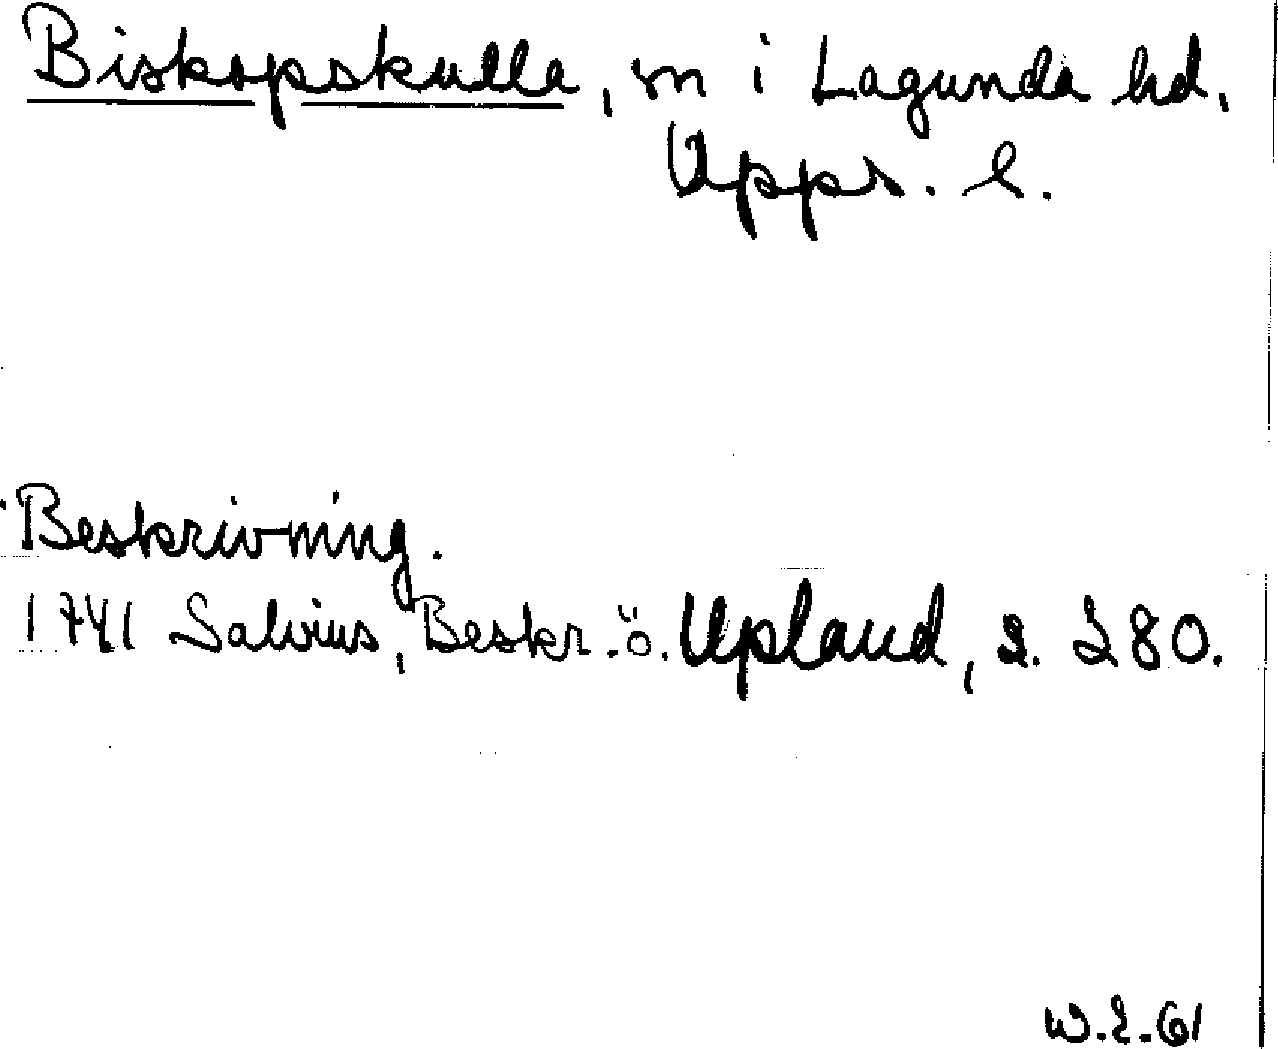 Biskopskulla, sn i Lagunda hd,
Upps. l.
Beskrivning.
1741 Salvius, Beskr. ö. Upland, s. 280.
W.E.61